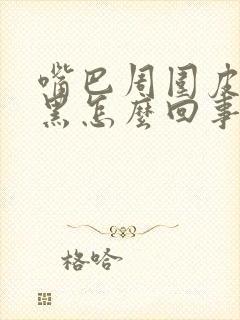 嘴巴周围皮
黑怎麼回事
格哈